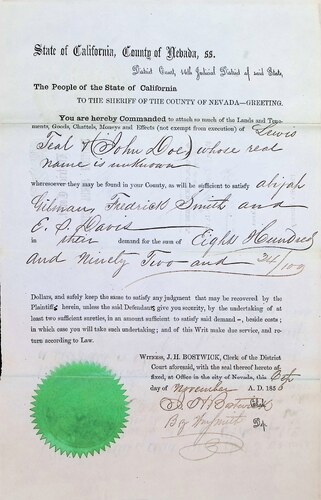 State of California, County of Nevada, ss.
District Court, 14th Judicial District of said State,
The People of the State of California
TO THE SHERIFF OF THE COUNTY OF NEVADA—GREETING.
You are hereby Commanded to attach so much of the Lands and Tene-
ments, Goods, Chattels, Moneys and Effects (not exempt from execution) of Lewis
Teal & (John Doe) whose real
name is unknown
wheresoever they may be found in your County, as will be sufficient to satisfy abijah
Gilman, Fredrick Smith and
E. S. Davis
in their demand for the sum of Eight Hundred
and Ninety Two and 34/100
Dollars, and safely keep the same to satisfy any judgment that may be recovered by the
Plaintiffs herein, unless the said Defendants give you security, by the undertaking of at
least two sufficient sureties, in an amount sufficient to satisfy said demand, beside costs;
in which case you will take such undertaking; and of this Writ make due service, and re-
turn according to Law.
WITNESS, J. H. BOSTWICK, Clerk of the District
Court aforesaid, with the seal thereof hereto af-
fixed, at Office in the city of Nevada, this
day of November A. D. 185
J. H. Bostwick Clk
By Dp.